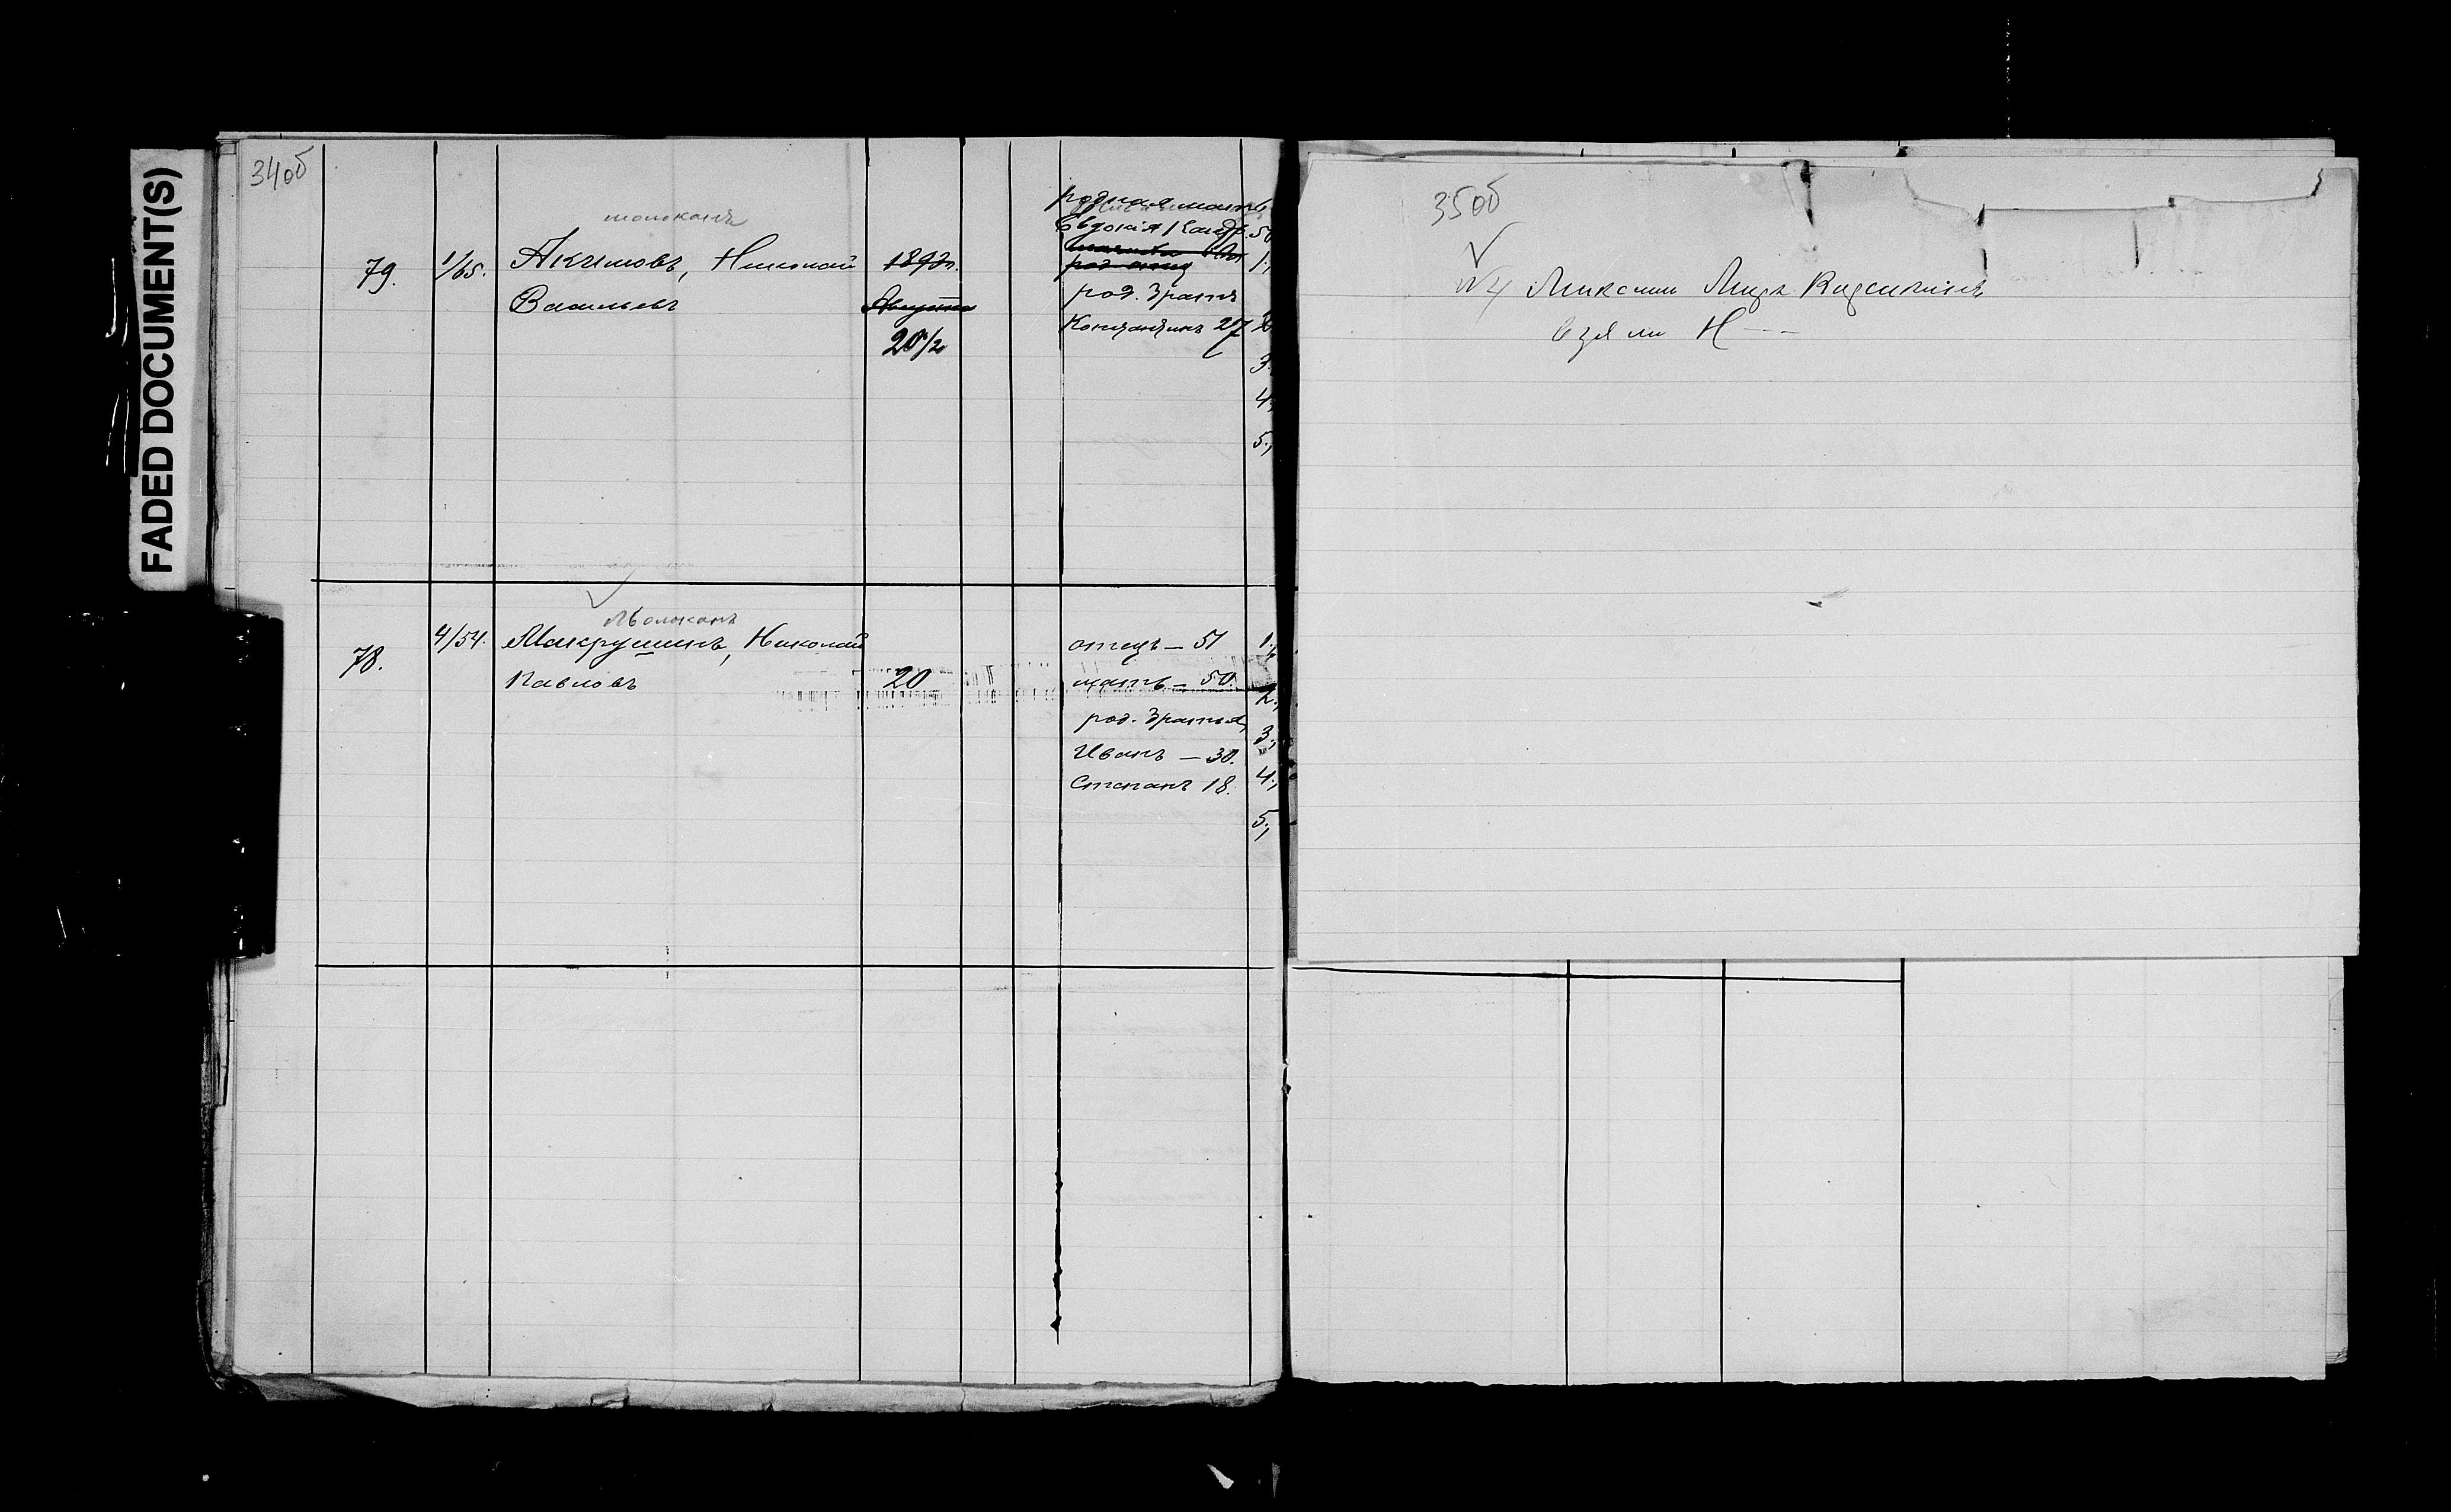 FADED DOCUMENT(S)
34об
молоканъ
79.
1/65.
Акимовъ, Николай
Васильевъ
1893г.
Августа
20 1/2
родная мать
Евдокія
50
род. отец
род. братъ
Константинъ 27
1.,
3.,
4.,
5.,
Молоканъ
78.
4/54.
Макрушинъ, Николай
Павловъ
20
отецъ — 51
мать — 50.
род. братья,
Иванъ — 30.
Степанъ 18.
1.,
2.,
3.,
4.,
5.,
35об
№4
взяли Н---